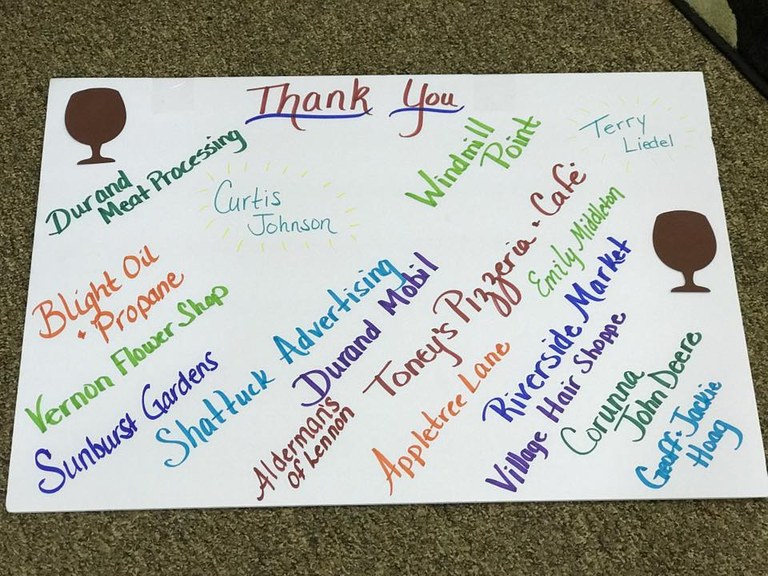 Thank You
Durand
Meat Processing
Curtis
Johnson
Windmill
Point
Terry
Liedel
Blight Oil
• Propane
Vernon Flower Shop
Sunburst Gardens
Shattuck Advertising
Durand Mobil
Toney's Pizzeria • Café
Emily Middleton
Alderman's
of Lennon
Appletree Lane
Riverside Market
Village Hair Shoppe
Corunna
John Deere
Geoff • Jackie
Haag